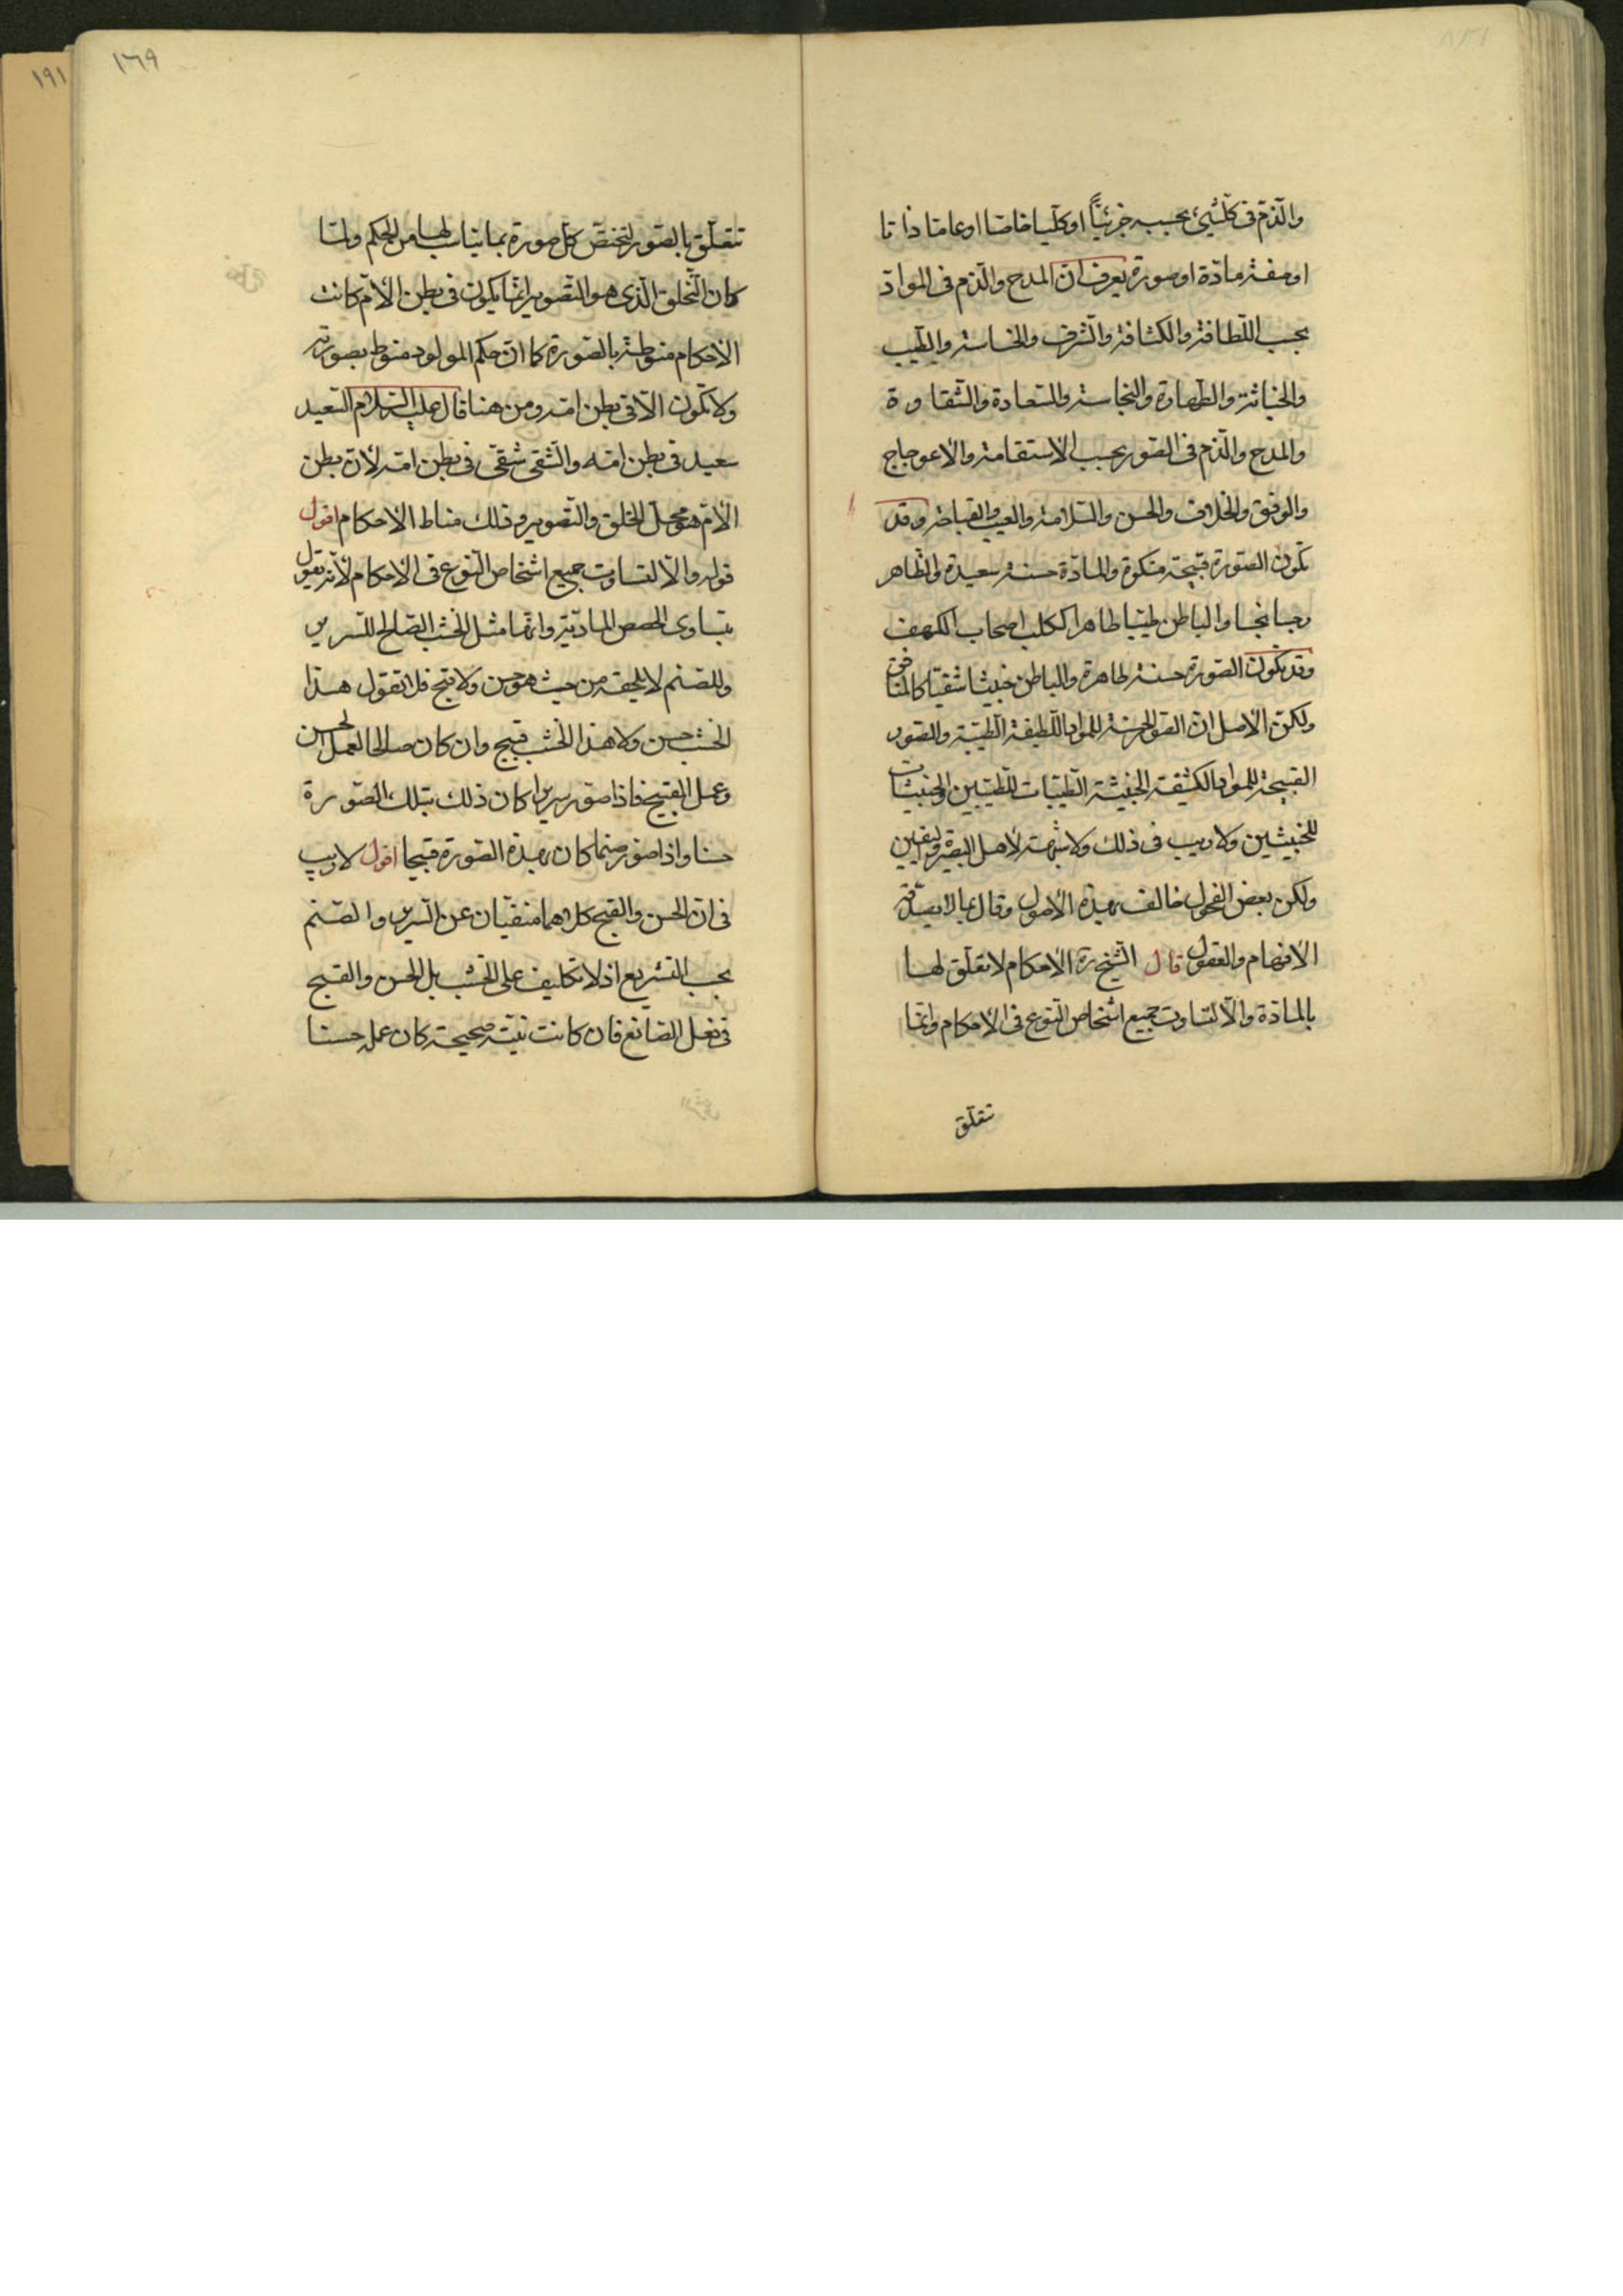 والذم فى كل شيئ بحسبه جزئياً او كليا خاصا او عاما ذاتا
او صفة مادة او صورة يعرف ان المدح والذم فى المواد
بحسب اللطافة والكثافة والشرف والخساسة والطيب
والخباثة والطهارة والنجاسة والسعادة والشقاوة
والمدح والذم فى الصور بحسب الاستقامة والاعوجاج
والوفق والخلاف والحسن والسلامة والعيب والقباحة وقد
تكون الصورة قبيحة منكرة والمادة حسنة سعيدة والظاهر
رجسا نجسا والباطن طيبا طاهرا ككلب اصحاب الكهف
وقد تكون الصورة حسنة طاهرة والباطن خبيثا شقيا كالمنافق
ولكن الاصل ان الصور الحسنة للمواد اللطيفة الطيبة والصور
القبيحة للمواد الكثيفة الخبيثة الطيبات للطيبين والخبيثات
للخبيثين ولا ريب فى ذلك ولا شبهة لاهل البصيرة واليقين
ولكن بعض الفحول خالف بهذه الاصول وقال بما لا يصدقه
الافهام والعقول قال الشيخ ره الاحكام لا تعلق لها
بالمادة والا لتساوت جميع اشخاص النوع فى الاحكام وانما
تتعلق
١٦٩
١٩١
تتعلق بالصور لتختص كل صورة بما يناسب لها من الحكم ولما
كان التخلق الذى هو التصوير انما يكون فى بطن الام كانت
الاحكام منوطة بالصورة كما ان حكم المولود منوط بصورته
ولا تكون الا فى بطن امه ومن هنا قال عليه السلام السعيد
سعيد فى بطن امه والشقى شقى فى بطن امه لان بطن
الام هو محل الخلق والتصوير وذلك مناط الاحكام اقول
قوله والا لتساوت جميع اشخاص النوع فى الاحكام لانه يقول
بتساوى الحصص المادية وانها مثل الخشب الصالح للسرير
وللصنم لا يلحقه من حيث هو حسن ولا قبح فلا تقول هذا
الخشب حسن ولا هذا الخشب قبيح وان كان صالحا لعمل الحسن
وعمل القبيح فاذا صور سريرا كان ذلك بتلك الصورة
حسنا واذا صور صنما كان بهذه الصورة قبيحا اقول لا ريب
فى ان الحسن والقبح كلاهما منفيان عن السرير والصنم
بحسب التشريع اذ لا تكليف على الخشب بل الحسن والقبح
فى فعل الصانع فان كانت نيته صحيحة كان عمله حسنا